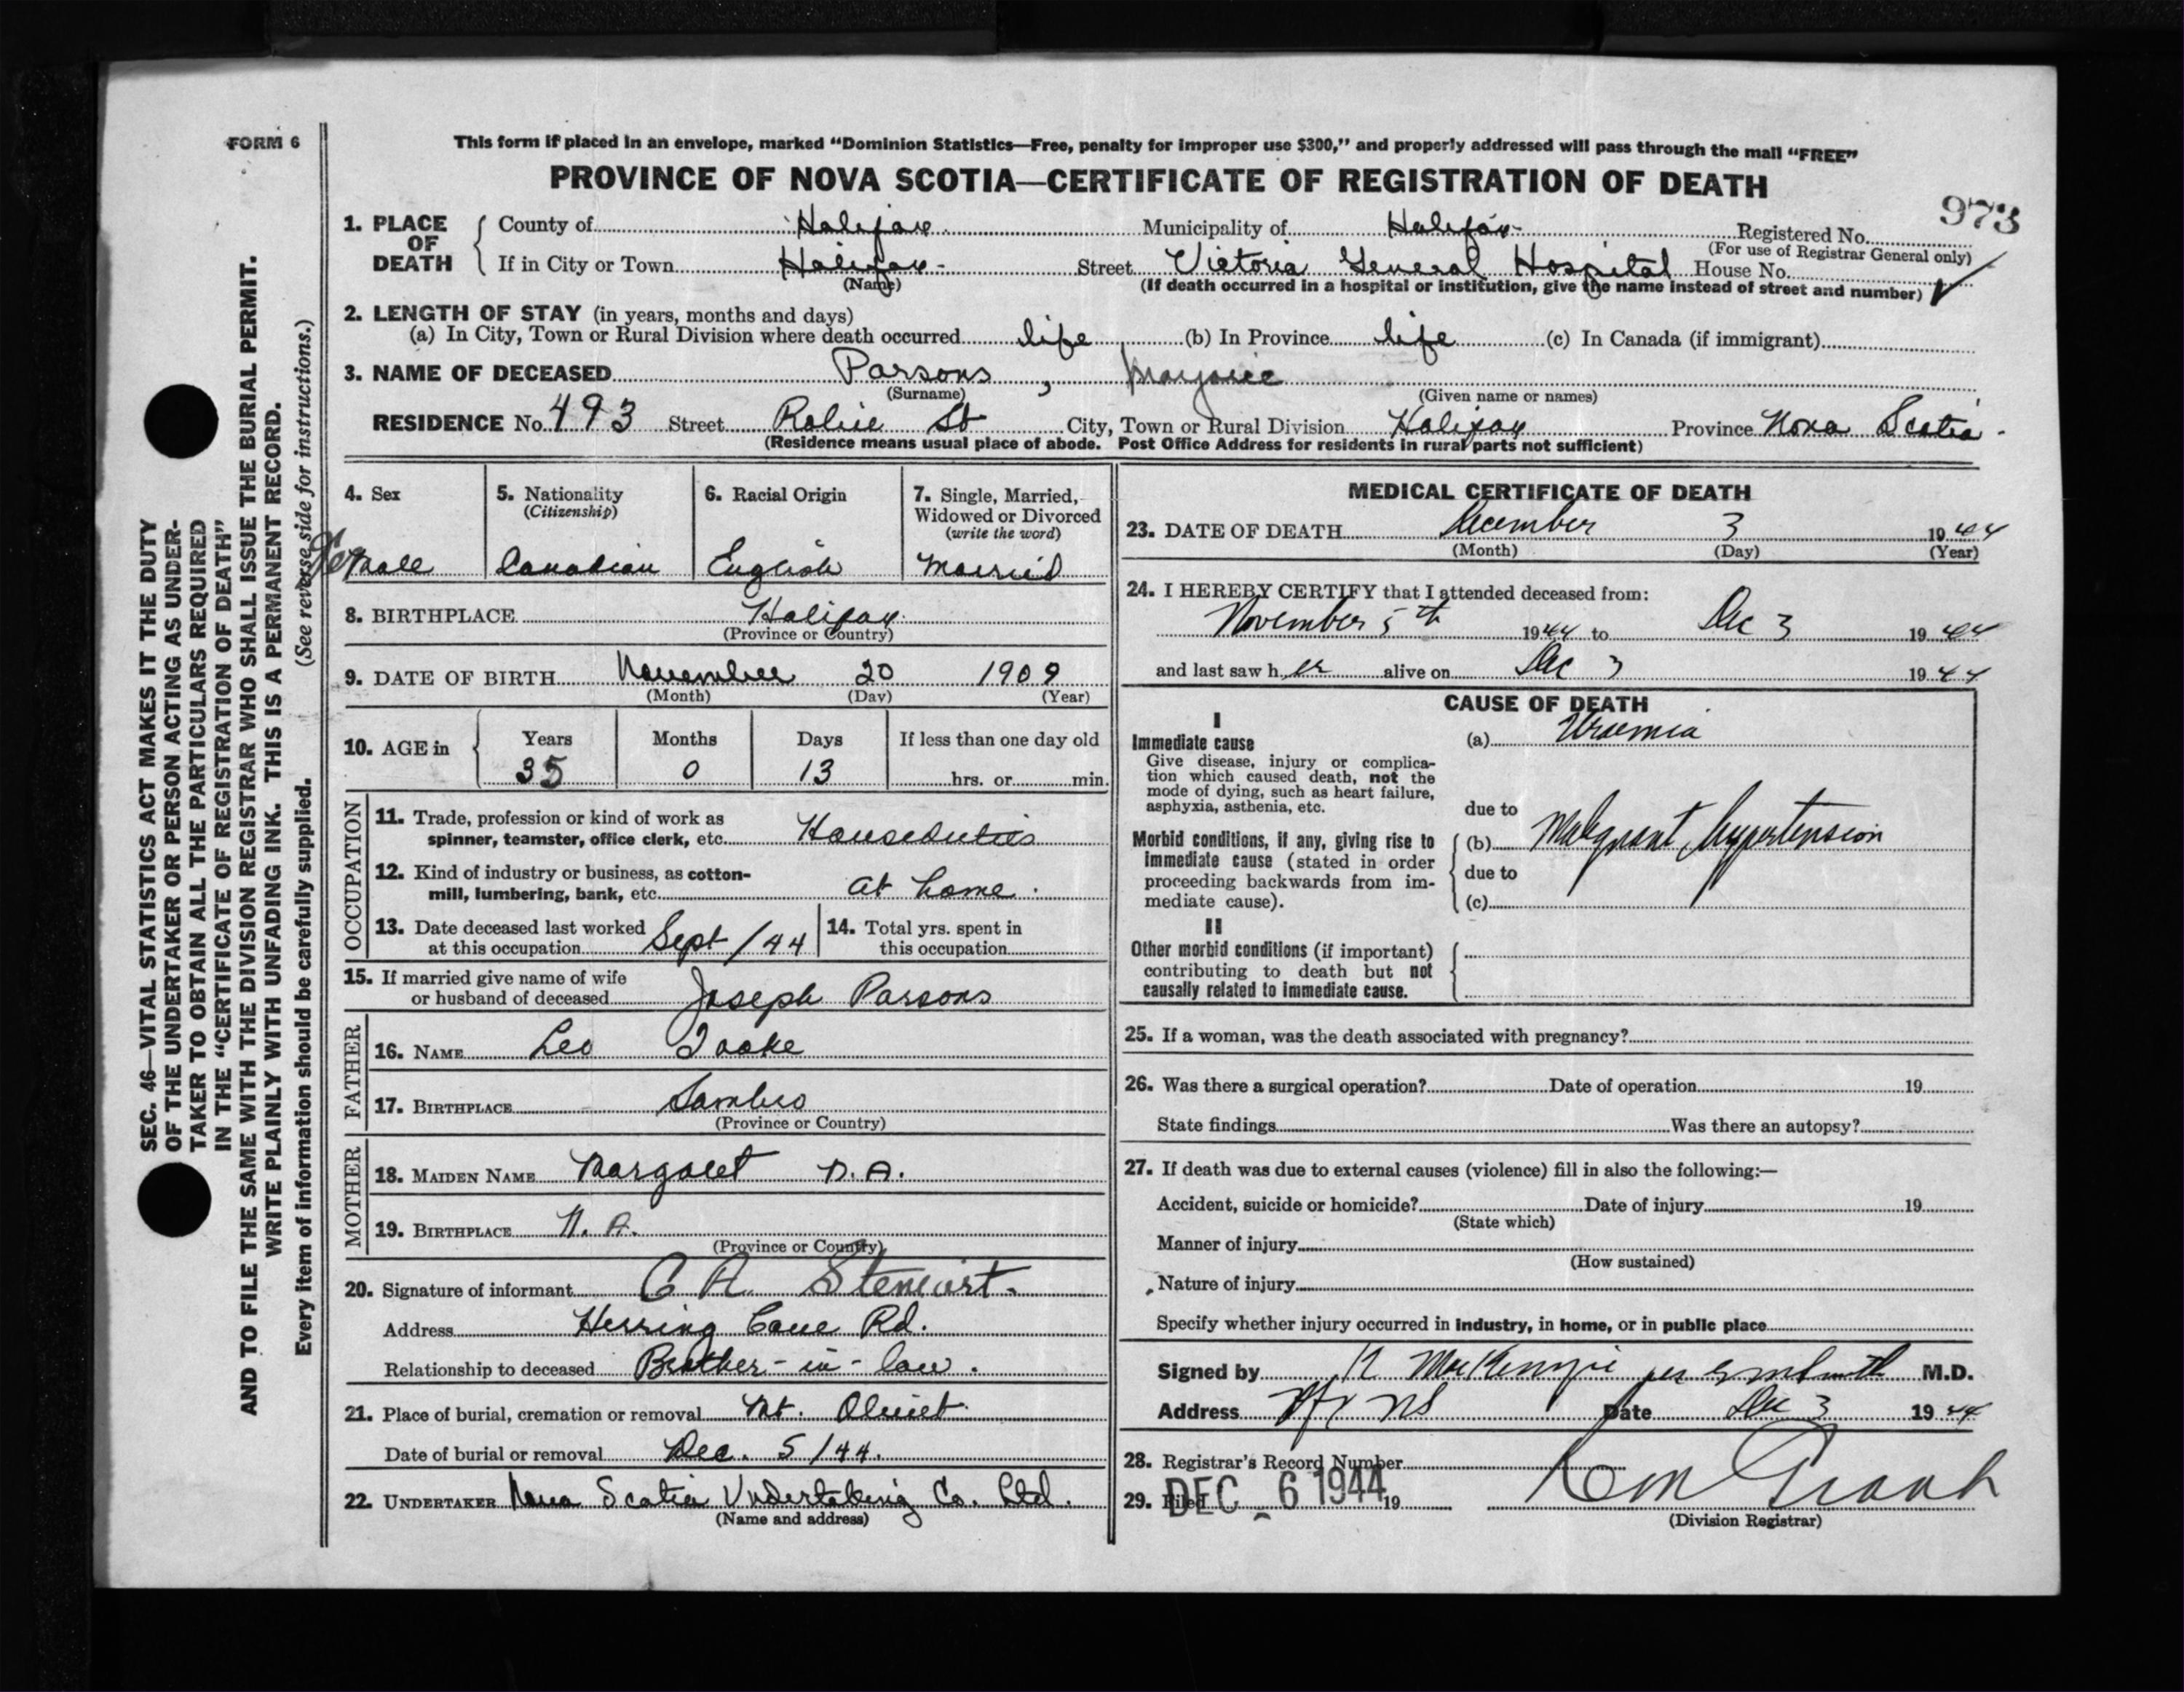 FORM 6
This form if placed in an envelope, marked "Dominion Statistics—Free, penalty for improper use $300," and properly addressed will pass through the mail "FREE"
PROVINCE OF NOVA SCOTIA—CERTIFICATE OF REGISTRATION OF DEATH
973
1. PLACE OF DEATH
County of Halifax Municipality of Halifax Registered No.
(For use of Registrar General only)
If in City or Town Halifax Street Victoria General Hospital House No.
(Name) (If death occurred in a hospital or institution, give the name instead of street and number)
2. LENGTH OF STAY (in years, months and days)
(a) In City, Town or Rural Division where death occurred life (b) In Province life (c) In Canada (if immigrant)
3. NAME OF DECEASED Parsons, Marjorie
(Surname) (Given name or names)
RESIDENCE No. 493 Street Robie St City, Town or Rural Division Halifax Province Nova Scotia
(Residence means usual place of abode. Post Office Address for residents in rural parts not sufficient)
4. Sex
Female
5. Nationality
(Citizenship)
Canadian
6. Racial Origin
English
7. Single, Married,
Widowed or Divorced
(write the word)
Married
8. BIRTHPLACE Halifax
(Province or Country)
9. DATE OF BIRTH November 20 1909
(Month) (Day) (Year)
10. AGE in Years Months Days If less than one day old
35 0 13 hrs. or min.
OCCUPATION
11. Trade, profession or kind of work as
spinner, teamster, office clerk, etc. Houseduties
12. Kind of industry or business, as cotton-
mill, lumbering, bank, etc. at home.
13. Date deceased last worked
at this occupation Sept/44
14. Total yrs. spent in
this occupation
15. If married give name of wife
or husband of deceased Joseph Parsons
FATHER
16. NAME Leo Tooke
17. BIRTHPLACE Sambro
(Province or Country)
MOTHER
18. MAIDEN NAME Margaret N.A.
19. BIRTHPLACE N.A.
(Province or Country)
20. Signature of informant
Address Herring Cove Rd.
Relationship to deceased Brother-in-law.
21. Place of burial, cremation or removal Mt. Olivet
Date of burial or removal Dec. 5/44.
22. UNDERTAKER Nova Scotia Undertaking Co. Ltd.
(Name and address)
MEDICAL CERTIFICATE OF DEATH
23. DATE OF DEATH December 3 1944
(Month) (Day) (Year)
24. I HEREBY CERTIFY that I attended deceased from:
November 5th 1944 to Dec 3 1944
and last saw her alive on Dec 3 1944
CAUSE OF DEATH
I
Immediate cause
Give disease, injury or complica-
tion which caused death, not the
mode of dying, such as heart failure,
asphyxia, asthenia, etc.
(a) Uraemia
due to
Morbid conditions, if any, giving rise to
immediate cause (stated in order
proceeding backwards from im-
mediate cause).
(b) Malignant hypertension
due to
(c)
II
Other morbid conditions (if important)
contributing to death but not
causally related to immediate cause.
25. If a woman, was the death associated with pregnancy?
26. Was there a surgical operation? Date of operation 19
State findings Was there an autopsy?
27. If death was due to external causes (violence) fill in also the following:—
Accident, suicide or homicide? Date of injury 19
(State which)
Manner of injury
(How sustained)
Nature of injury
Specify whether injury occurred in industry, in home, or in public place
Signed by K MacKenzie per M.D.
Address Hfx NS Date Dec 3 1944
28. Registrar's Record Number
29. Filed DEC - 6 1944 19
(Division Registrar)
SEC. 46—VITAL STATISTICS ACT MAKES IT THE DUTY
OF THE UNDERTAKER OR PERSON ACTING AS UNDER-
TAKER TO OBTAIN ALL THE PARTICULARS REQUIRED
IN THE "CERTIFICATE OF REGISTRATION OF DEATH"
AND TO FILE THE SAME WITH THE DIVISION REGISTRAR WHO SHALL ISSUE THE BURIAL PERMIT.
WRITE PLAINLY WITH UNFADING INK. THIS IS A PERMANENT RECORD.
Every item of information should be carefully supplied. (See reverse side for instructions.)